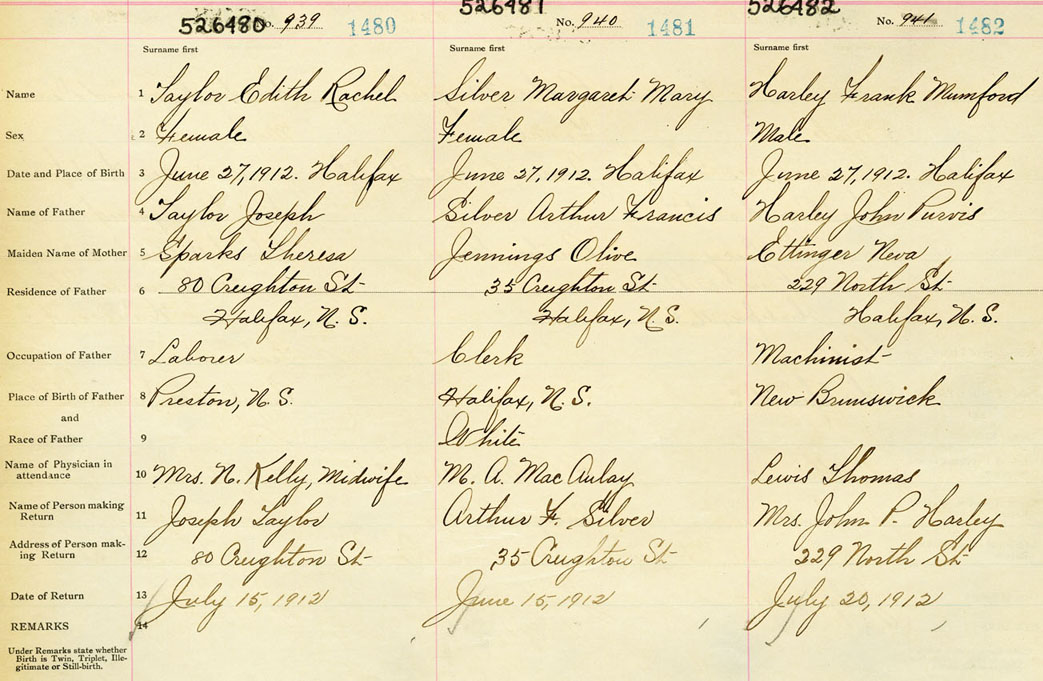 526480 No. 939 1480 526481 No. 940 1481 526482 No. 941 1482
Surname first Surname first Surname first
Name 1 Taylor Edith Rachel Silver Margaret Mary Harley Frank Mumford
Sex 2 Female Female Male
Date and Place of Birth 3 June 27, 1912. Halifax June 27, 1912. Halifax June 27, 1912. Halifax
Name of Father 4 Taylor Joseph Silver Arthur Francis Harley John Purvis
Maiden Name of Mother 5 Sparks Theresa Jennings Olive Ettinger Neva
Residence of Father 6 80 Creighton St 35 Creighton St 229 North St
Halifax, N.S. Halifax, N.S. Halifax, N.S.
Occupation of Father 7 Laborer Clerk Machinist
Place of Birth of Father 8 Preston, N.S. Halifax, N.S. New Brunswick
and
Race of Father 9 White
Name of Physician in attendance 10 Mrs. N. Kelly, Midwife M. A. MacAulay Lewis Thomas
Name of Person making Return 11 Joseph Taylor Arthur F. Silver Mrs. John P. Harley
Address of Person mak-
ing Return 12 80 Creighton St 35 Creighton St 229 North St
Date of Return 13 July 15, 1912 June 15, 1912 July 20, 1912
REMARKS 14
Under Remarks state whether
Birth is Twin, Triplet, Ille-
gitimate or Still-birth.